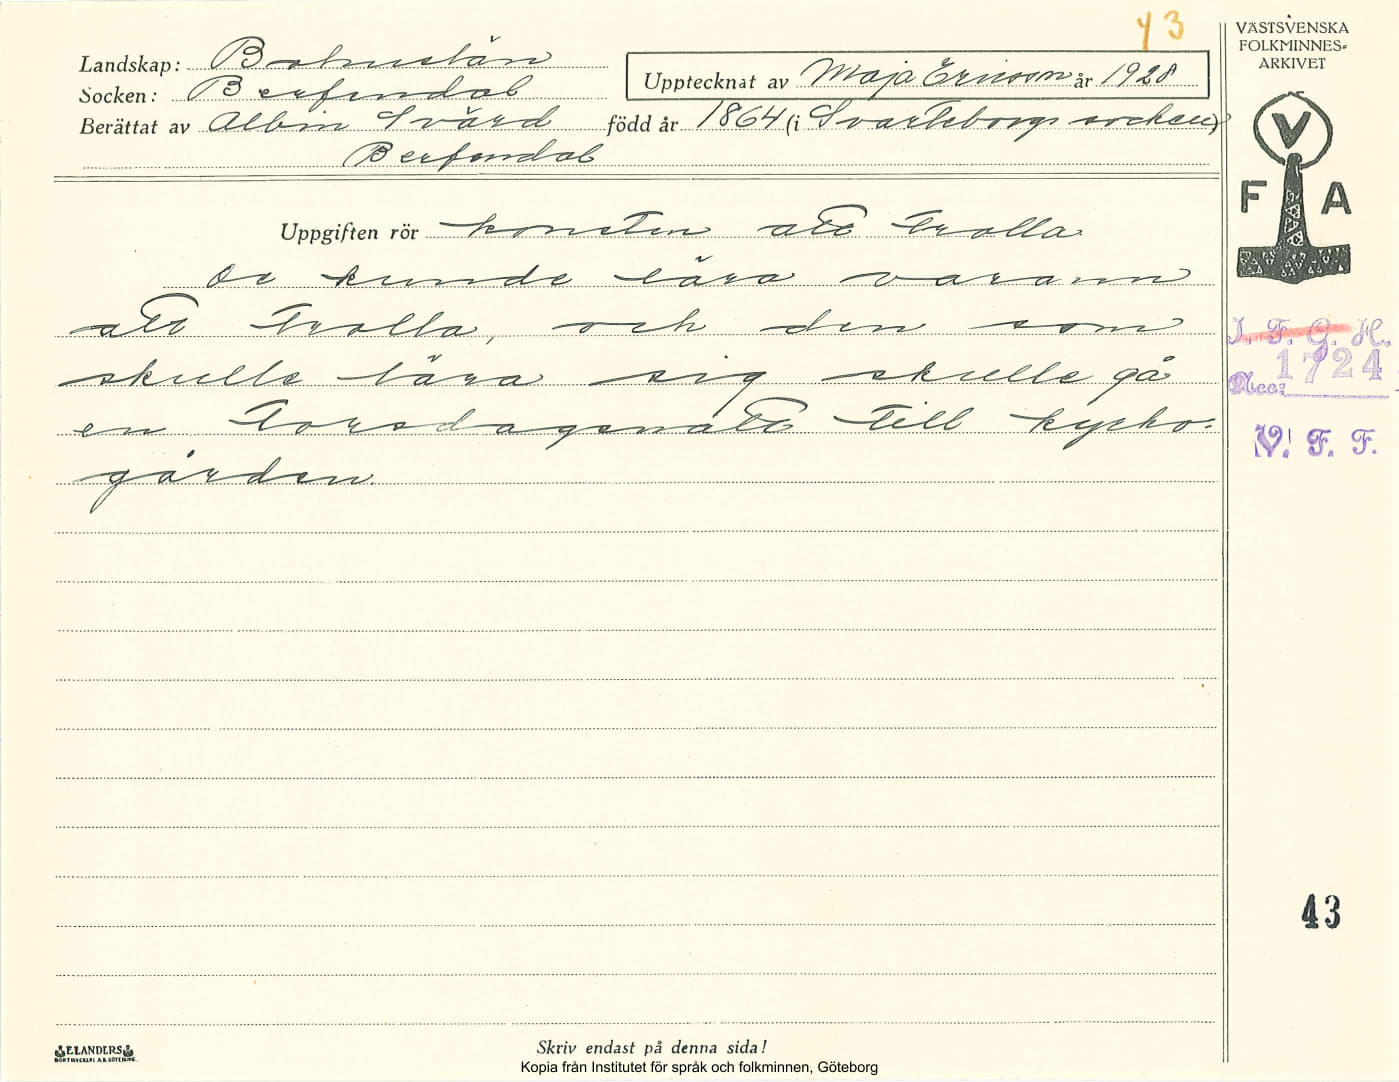 43
VÄSTSVENSKA
FOLKMINNES-
ARKIVET
Landskap: Bohuslän
Upptecknat av Maja Ericson år 1928
Socken: Berfendal
Berättat av Albin Svärd född år 1864 (i Svarteborgs socken)
Berfendal
V
F A
Uppgiften rör konsten att trolla
De kunde lära varann
att trolla, och den som
skulle lära sig skulle gå
en torsdagsnatt till kyrko-
gården.
I. F. G. H.
1724
Acc:
V. F. F.
43
ELANDERS
BOKTRYCKERI A.B. GÖTEBORG
Skriv endast på denna sida!
Kopia från Institutet för språk och folkminnen, Göteborg